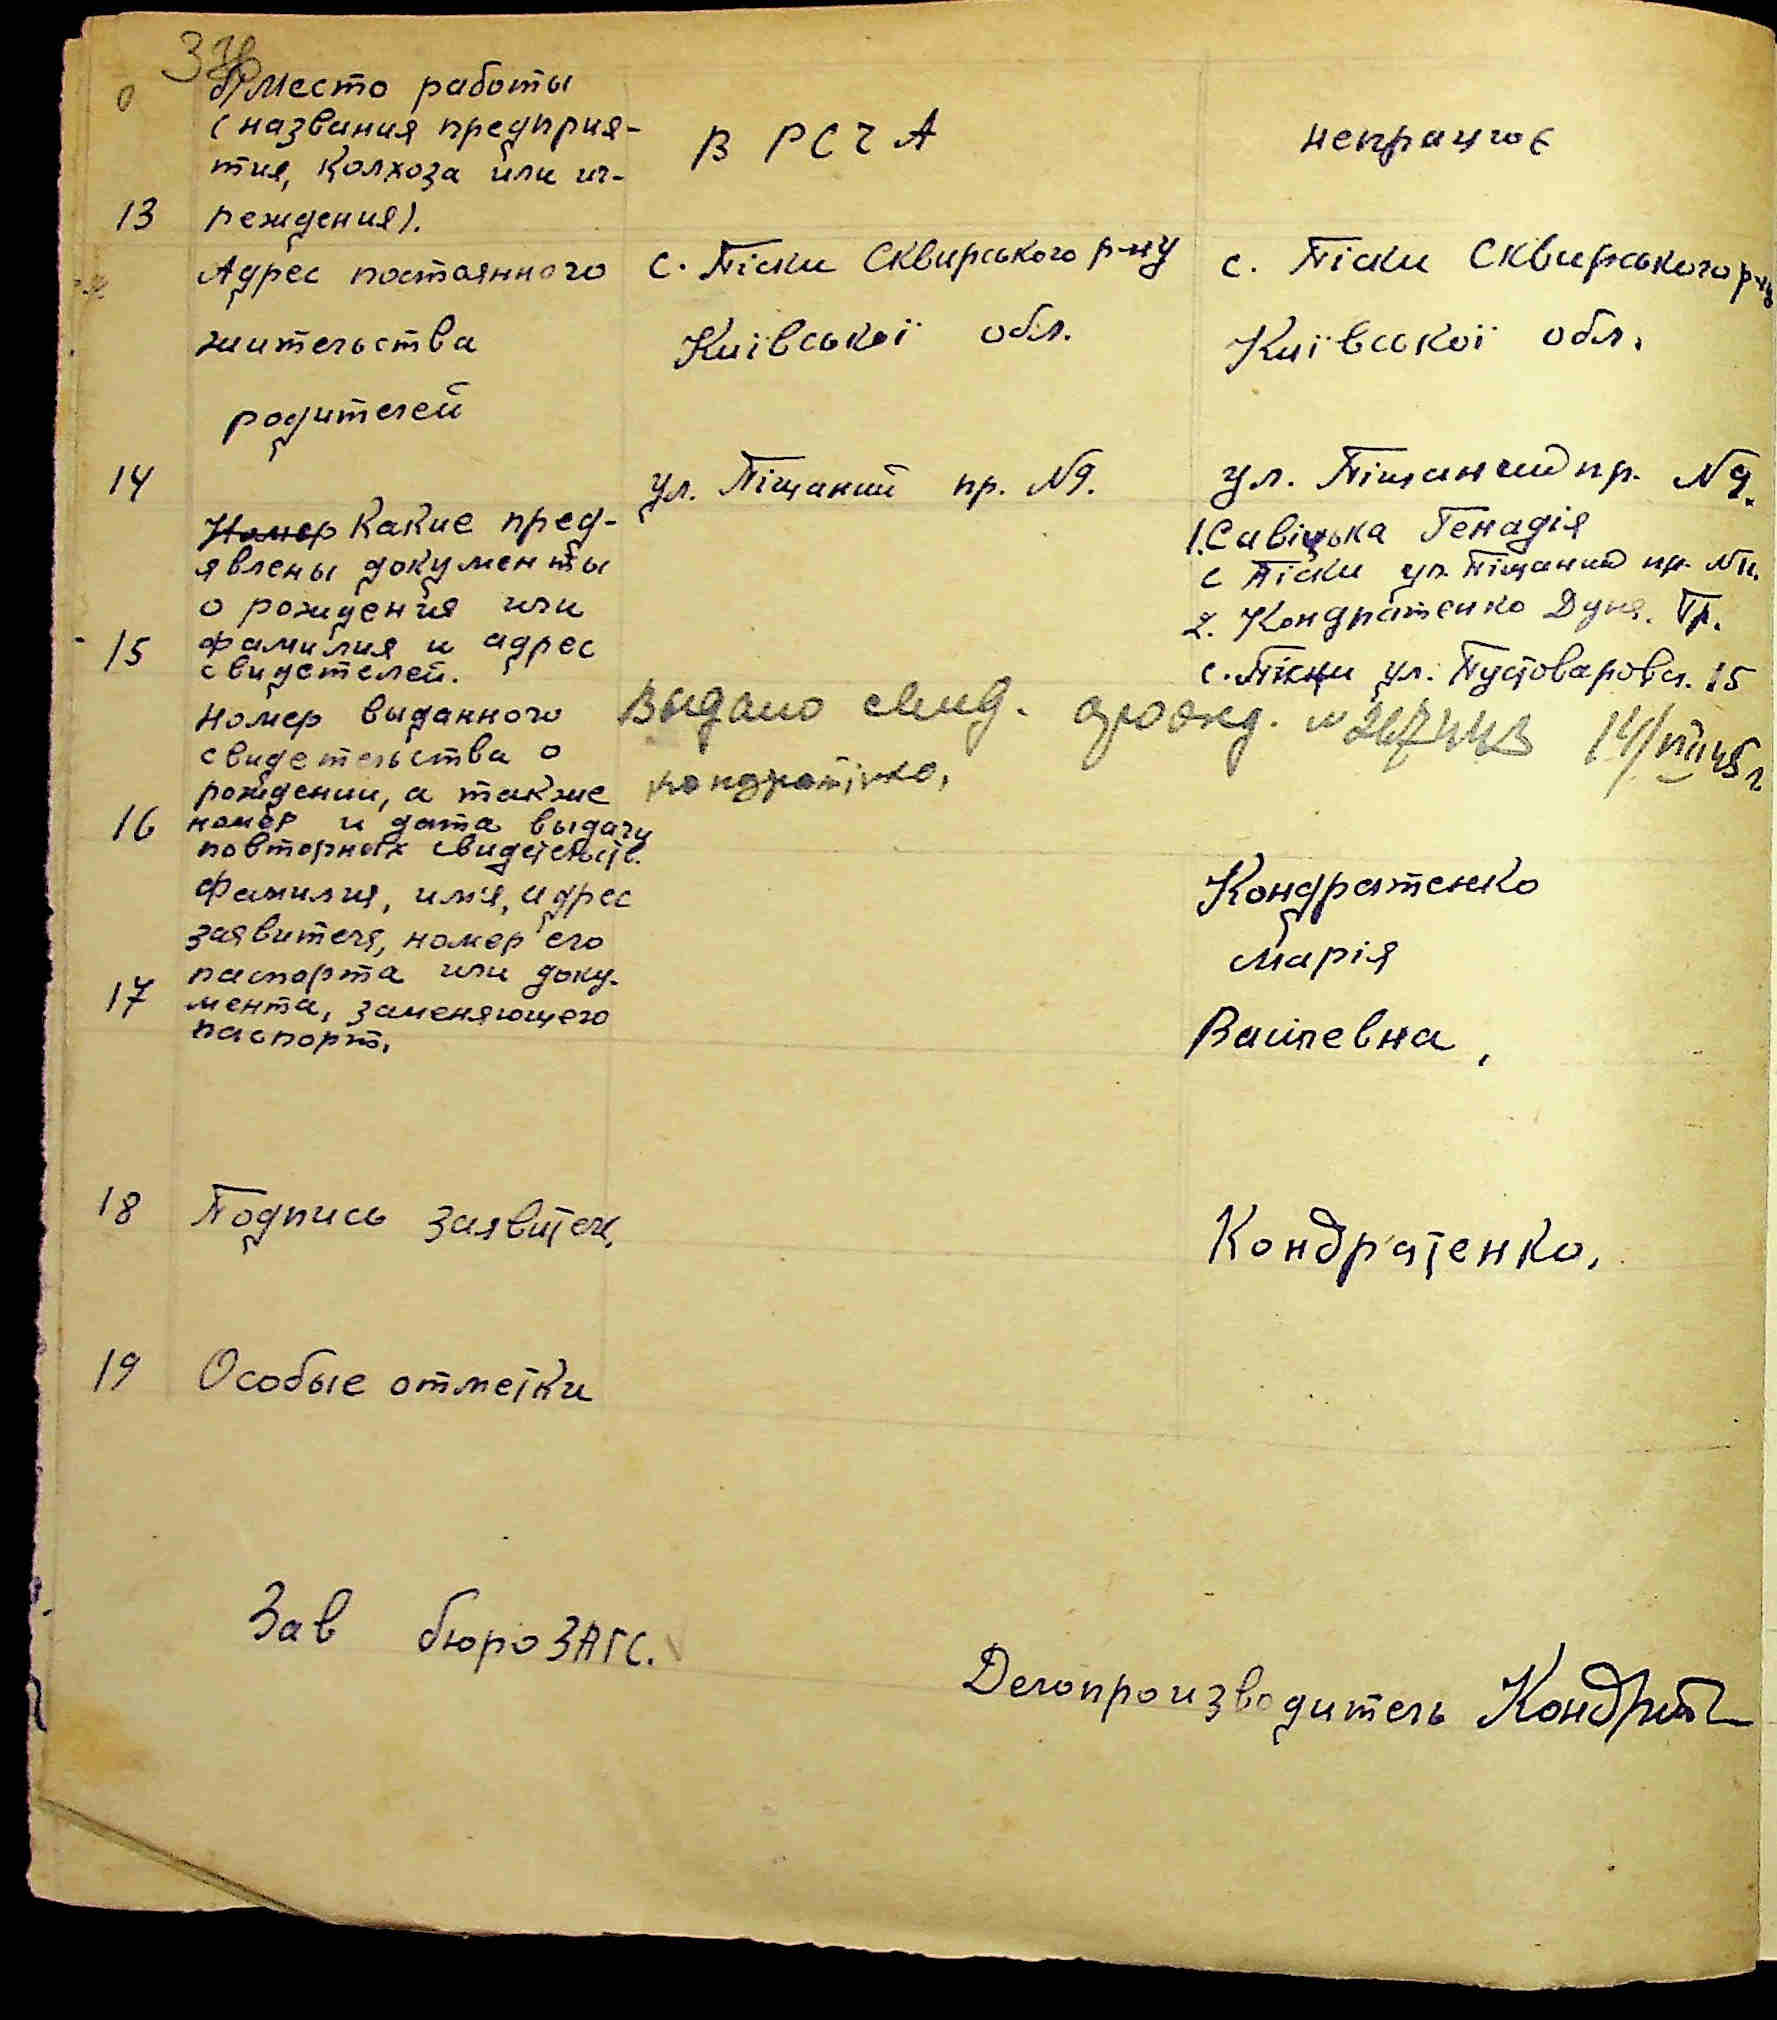 б) Место работы
(названия предприя-
тия, колхоза или уч-
13 реждения).
в РСЧА
непрацює
Адрес постоянного
жительства
родителей
14
с. Піски Сквирського р-ну
Київської обл.
ул. Піщаний пр. N9.
с. Піски Сквирського р-ну
Київської обл.
ул. Піщаний пр. N9.
Номер Какие пред-
явлены документы
о рождения или
15 фамилия и адрес
свидетелей.
1. Савіцька Генадія
с Піски ул. Піщаний пр. N11.
2. Кондратенко Дуня. Гр.
с. Піски ул. Пустоварова. 15
Номер выданного
свидетельства о
рождении, а также
16 номер и дата выдачи
повторных свидетельств.
Выдано свид. о рожд. №267443 14/VIII 45 г
Фамилия, имя, адрес
заявителя, номер его
паспорта или доку-
17 мента, заменяющего
паспорт.
Кондратенко
Марія
Василевна,
18 Подпись заявителя,
Кондратенко,
19 Особые отметки
Зав бюро ЗАГС.
Делопроизводитель